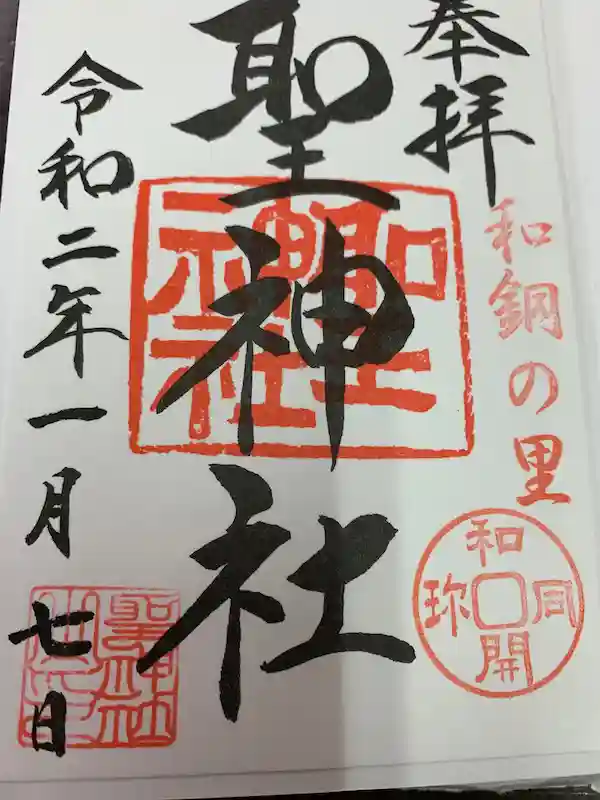 奉拝
和銅の里
和同開珎
聖神社
聖神社
令和二年一月七日